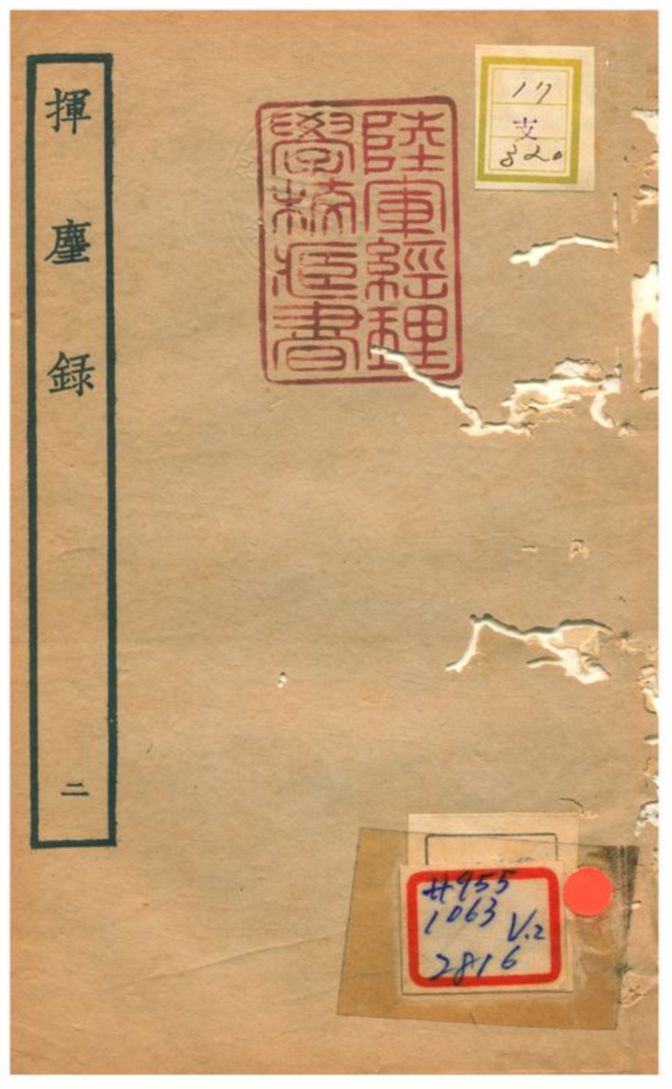 揮麈録
二
陸軍經理
學校臧書
17
支
320
#955
1063 V.2
2816